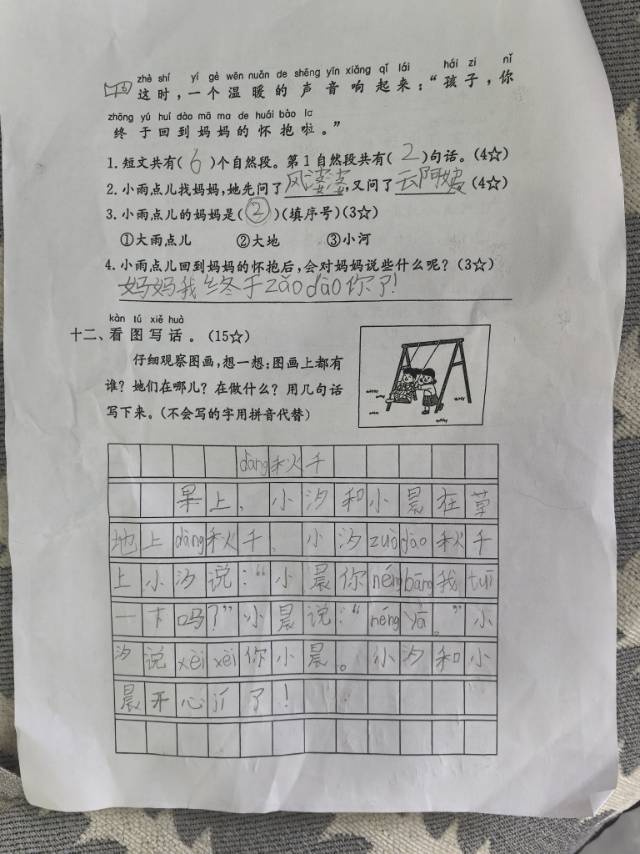 zhè shí yí gè wēn nuǎn de shēng yīn xiǎng qǐ lái hái zi nǐ
这时，一个温暖的声音响起来：“孩子，你
zhōng yú huí dào mā ma de huái bào la
终于回到妈妈的怀抱啦。”
1. 短文共有( 6 )个自然段。第1自然段共有( 2 )句话。(4☆)
2. 小雨点儿找妈妈，她先问了风婆婆，又问了云阿姨(4☆)
3. 小雨点儿的妈妈是(②)(填序号)(3☆)
①大雨点儿 ②大地 ③小河
4. 小雨点儿回到妈妈的怀抱后，会对妈妈说些什么呢？(3☆)
妈妈我终于zǎo dào你了！
kàn tú xiě huà
十二、看图写话。(15☆)
仔细观察图画，想一想：图画上都有
谁？她们在哪儿？在做什么？用几句话
写下来。(不会写的字用拼音代替)
dàng秋千
早上、小汐和小晨在草
地上dàng秋千、小汐zuò dào秋千
上小汐说：“小晨你néng bāng我tuī
一下吗？”小晨说：“néng yā。”小
汐说xèi xèi你小晨。小汐和小
晨开心了！